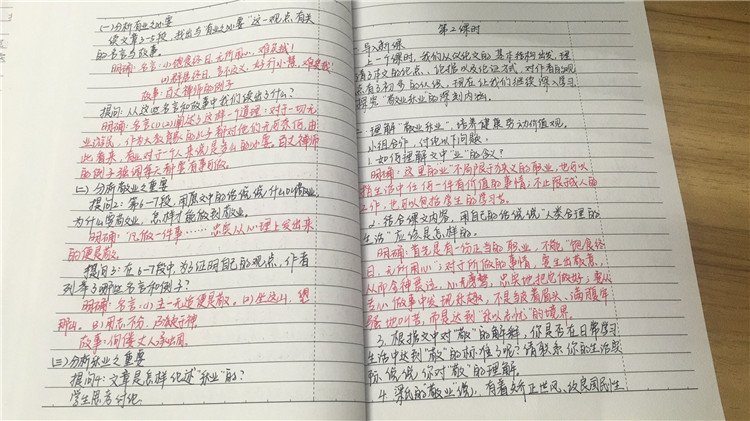 (一)分析有业之必要
读文章3-5段,找出与"有业之必要"这一观点有关
的名言与故事。
明确:名言:(1)饱食终日,无所用心,难矣哉!
(2)群居终日,言不及义,好行小慧,难矣哉
故事:百丈禅师的例子
提问:从这些名言和故事中我们读出了什么?
明确:名言(1)(2)阐述了这样一个道理:对于一切无
业游民,作为大教育家的孔子都对他们无可奈何,由
此看来,有业对于一个人来说是多么的必要。百丈禅师
的例子强调
(二)分析敬业之重要
提问2:第6-7段,用原文中的话说说什么叫敬业,
为什么应敬业,怎样才能做到敬业。
明确:"凡做一件事……忠实从心理上发出来
的便是敬。
提问3:在6-7段中,为了证明自己的观点,作者
列举了哪些名言和例子?
明确:名言:(1)主一无适便是敬。(2)坐这山,望
那山。(3)用志不分,乃凝于神
故事:佝偻丈人承蜩
(三)分析乐业之重要
提问4:文章是怎样论述"乐业"的?
学生思考讨论
第2课时
一、导入新课
上一个课时,我们从议论文的基本特征出发,理
清了本文的论点、论据以及论证方式,对作者的观
点有了初步的认识。现在让我们继续深入学习
探究"敬业乐业"的深刻内涵。
二、理解"敬业乐业",培养健康劳动价值观。
小组合作,讨论以下问题。
1.如何理解文中"业"的含义?
明确:这里的"业"不局限于狭义的职业,也可以
指生活中任何一件有价值的事情;不止限成人的
工作,也可以包括学生的学习等。
2.结合课文内容,用自己的话说说"人类合理的
生活"应该是怎样的。
明确:首先是有一份正当的职业,不能"饱食终
日,无所用心";对于所做的事情,要生出敬意,
从而全神贯注,心无旁骛,忠实地把它做好;要从
苦心做事中发现乐趣,不是皱着眉头、满腹牢
骚地叫苦,而是达到"乐以忘忧"的境界。
3.根据文中对"敬"的解释,你是否在日常学习
生活中达到"敬"的标准了呢?请联系你的生活实
际,说说你对"敬"的理解。
4.梁氏的"敬业说",有着矫正世风、改良国民性